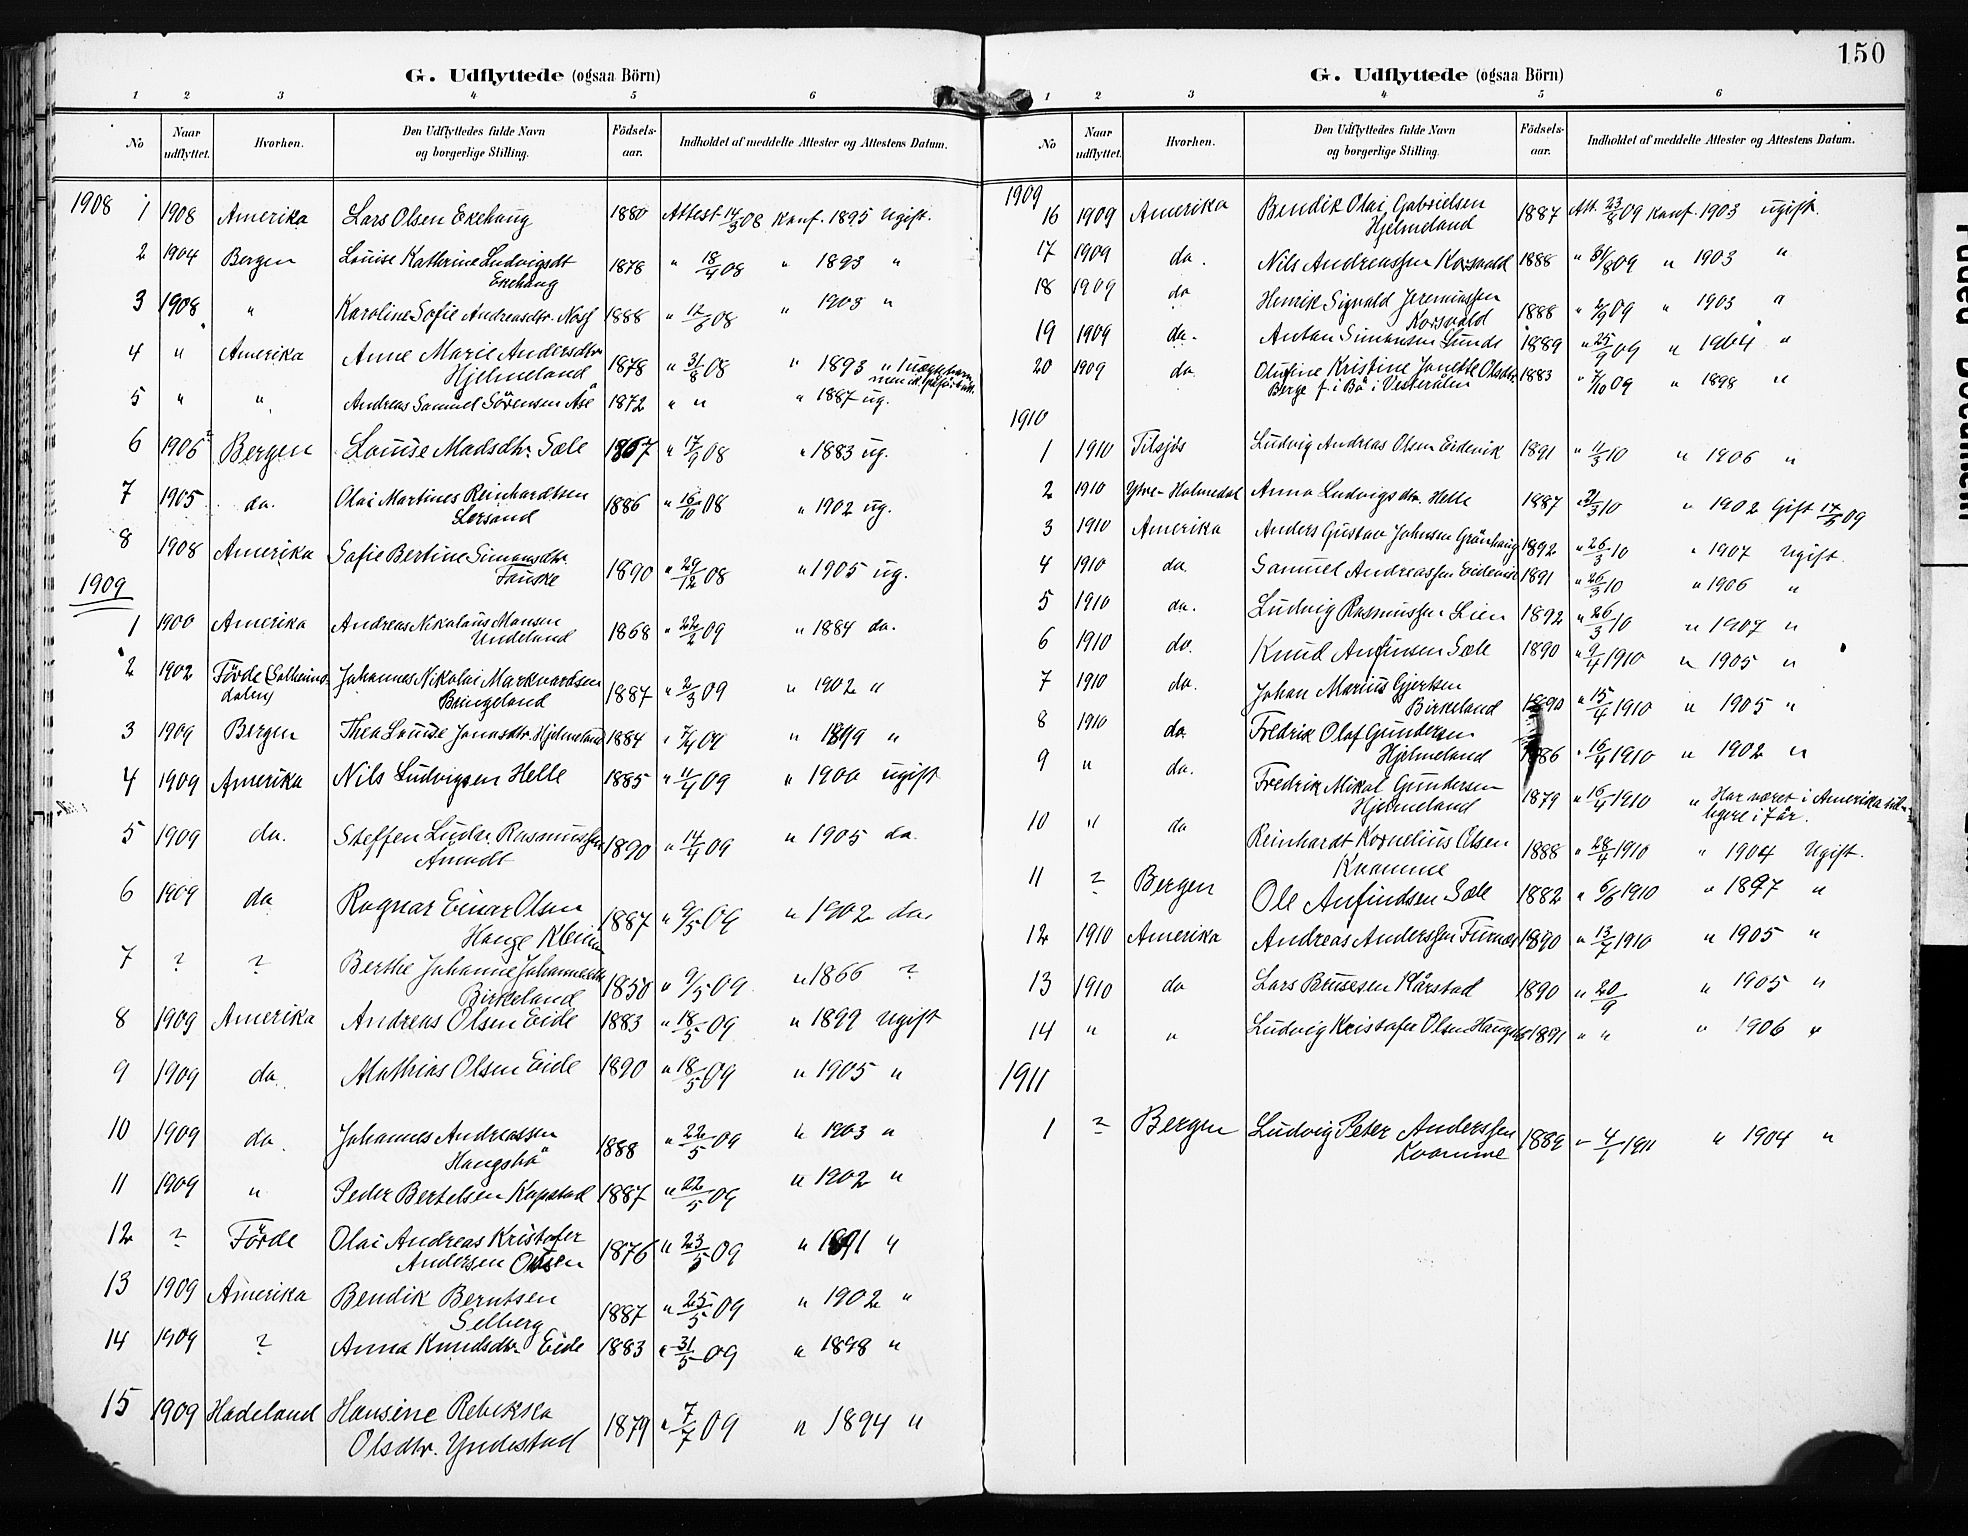 G. Udflyttede (ogsaa Börn)
1 2 3 4 5 6
No Naar udflyttet. Hvorhen. Den Udflyttedes fulde Navn og borgerlige Stilling. Födsels-aar. Indholdet af meddelte Attester og Attestens Datum.
1908 1 1908 Amerika Lars Olsen Ekehaug 1880 Attest 14/3 08 Konf. 1895 Ugift.
2 1904 Bergen Louise Kathrine Ludvigsdt 1878 " 18/4 08 " 1893 "
Ekehaug
3 1908 " Karoline Sofie Andreasdtr. 1888 " 12/6 08 " 1903 "
4 " Amerika Anne Marie Andersdtr 1878 " 31/8 08 " 1893 "
Hjelmeland
5 " " Andreas Samuel Sörensen Åse 1872 " " " 1887 ug.
6 1906 Bergen Louise Madsdtr. Sæle 1867 " 17/9 08 " 1883 ug.
7 1905 do. Olai Martines Reinhardtsen 1886 " 16/10 08 " 1902 ug.
8 1908 Amerika Sofie Bertine Simonsdtr. 1890 " 29/12 08 " 1905 ug.
1909
1 1900 Amerika Andreas Nikolaus Monsen 1868 " 22/2 09 " 1884 do.
Undeland
2 1902 Förde (Solheimsdalen) Johannes Nikolai Markvardsen 1887 " 2/3 09 " 1902 "
Bringeland
3 1909 Bergen Thea Louise Jonasdtr. Hjelmeland 1884 " 7/4 09 " 1899 "
4 1909 Amerika Nils Ludvigsen Helle 1885 " 11/4 09 " 1900 ugift
5 1909 do. Steffen Ludv. Rasmussen 1890 " 14/4 09 " 1905 do.
6 1909 do Ragnar Einar Olsen 1887 " 9/5 09 " 1902 do.
7 ? ? Berthe Johanne 1850 " 9/5 09 " 1866 ?
Birkeland
8 1909 Amerika Andreas Olsen Eide 1883 " 18/5 09 " 1899 Ugift
9 1909 do. Mathias Olsen Eide 1890 " 18/5 09 " 1905 "
10 1909 do. Johannes Andreassen 1888 " 22/5 09 " 1903 "
Haugsbö
11 1909 " Peder Bertelsen Kapstad 1887 " 22/5 09 " 1902 "
12 ? Förde Olai Andreas Kristofer 1876 " 23/5 09 " 1891 "
Andersen
13 1909 Amerika Bendik Berntsen 1887 " 25/5 09 " 1902 "
Selberg
14 1909 ? Anna Knudsdtr. Eide 1883 " 31/5 09 " 1898 "
15 1909 Hadeland Hansine Rebekka 1879 " 7/7 09 " 1894 "
Olsdtr. Yndestad
150
G. Udflyttede (ogsaa Börn)
1 2 3 4 5 6
No Naar udflyttet. Hvorhen. Den Udflyttedes fulde Navn og borgerlige Stilling. Födsels-aar. Indholdet af meddelte Attester og Attestens Datum.
1909
16 1909 Amerika Bendik Olai Gabrielsen 1887 Att. 23/8 09 Konf. 1903 ugift.
Hjelmeland
17 1909 do. Nils Andreassen Korsvold 1888 " 31/8 09 " 1903 "
18 1909 do Henrik Sigvald Jeremiassen 1888 " 2/9 09 " 1903 "
Korsvold
19 1909 do. Anton Simonsen Lunde 1889 " 25/9 09 " 1904 "
20 1909 do. Olufine Kristine Janette Olsdtr. 1883 " 7/10 09 " 1898 "
Berge f. i Bö i Vesterålen
1910
1 1910 Tilsjös Ludvig Andreas Olsen Eidevik 1891 " 11/3 10 " 1906 "
2 1910 Ytre-Holmedal Anna Ludvigsdtr. Helle 1887 21/3 10 " 1902 Gift 17/5 09
3 1910 Amerika Anders Gustav Johnsen Grönhaug 1892 " 26/3 10 " 1907 ugift.
4 1910 do. Samuel Andreassen Eidevik 1891 " 26/3 10 " 1906 "
5 1910 do. Ludvig Rasmussen Lien 1892 " 26/3 10 " 1907 "
6 1910 do. Knud Anfinsen Sæle 1890 " 9/4 1910 " 1905 "
7 1910 do. Johan Marius Gjertsen 1890 " 15/4 1910 " 1905 "
Birkeland
8 1910 do. Fredrik Olaf Gundersen 1886 " 16/4 1910 " 1902 "
Hjelmeland
9 " do. Fredrik Mikal Gundersen 1879 " 16/4 1910 " Har været i Amerika tid-
Hjelmeland ligere i 7 år.
10 " do Reinhardt Kornelius Olsen 1888 " 28/4 1910 " 1904 Ugift.
Kvamme
11 ? Bergen Ole Anfindsen Sæle 1882 " 6/6 1910 " 1897 "
12 1910 Amerika Andreas Anderssen Furnes 1890 " 13/7 1910 " 1905 "
13 1910 do Lars Kårstad 1890 " 20/9 " 1905 "
14 " " Ludvig Kristofer Olsen 1891 " " " 1906 "
1911
1 ? Bergen Ludvig Peter Anderssen 1889 " 4/1 1911 " 1904 "
Kvamme